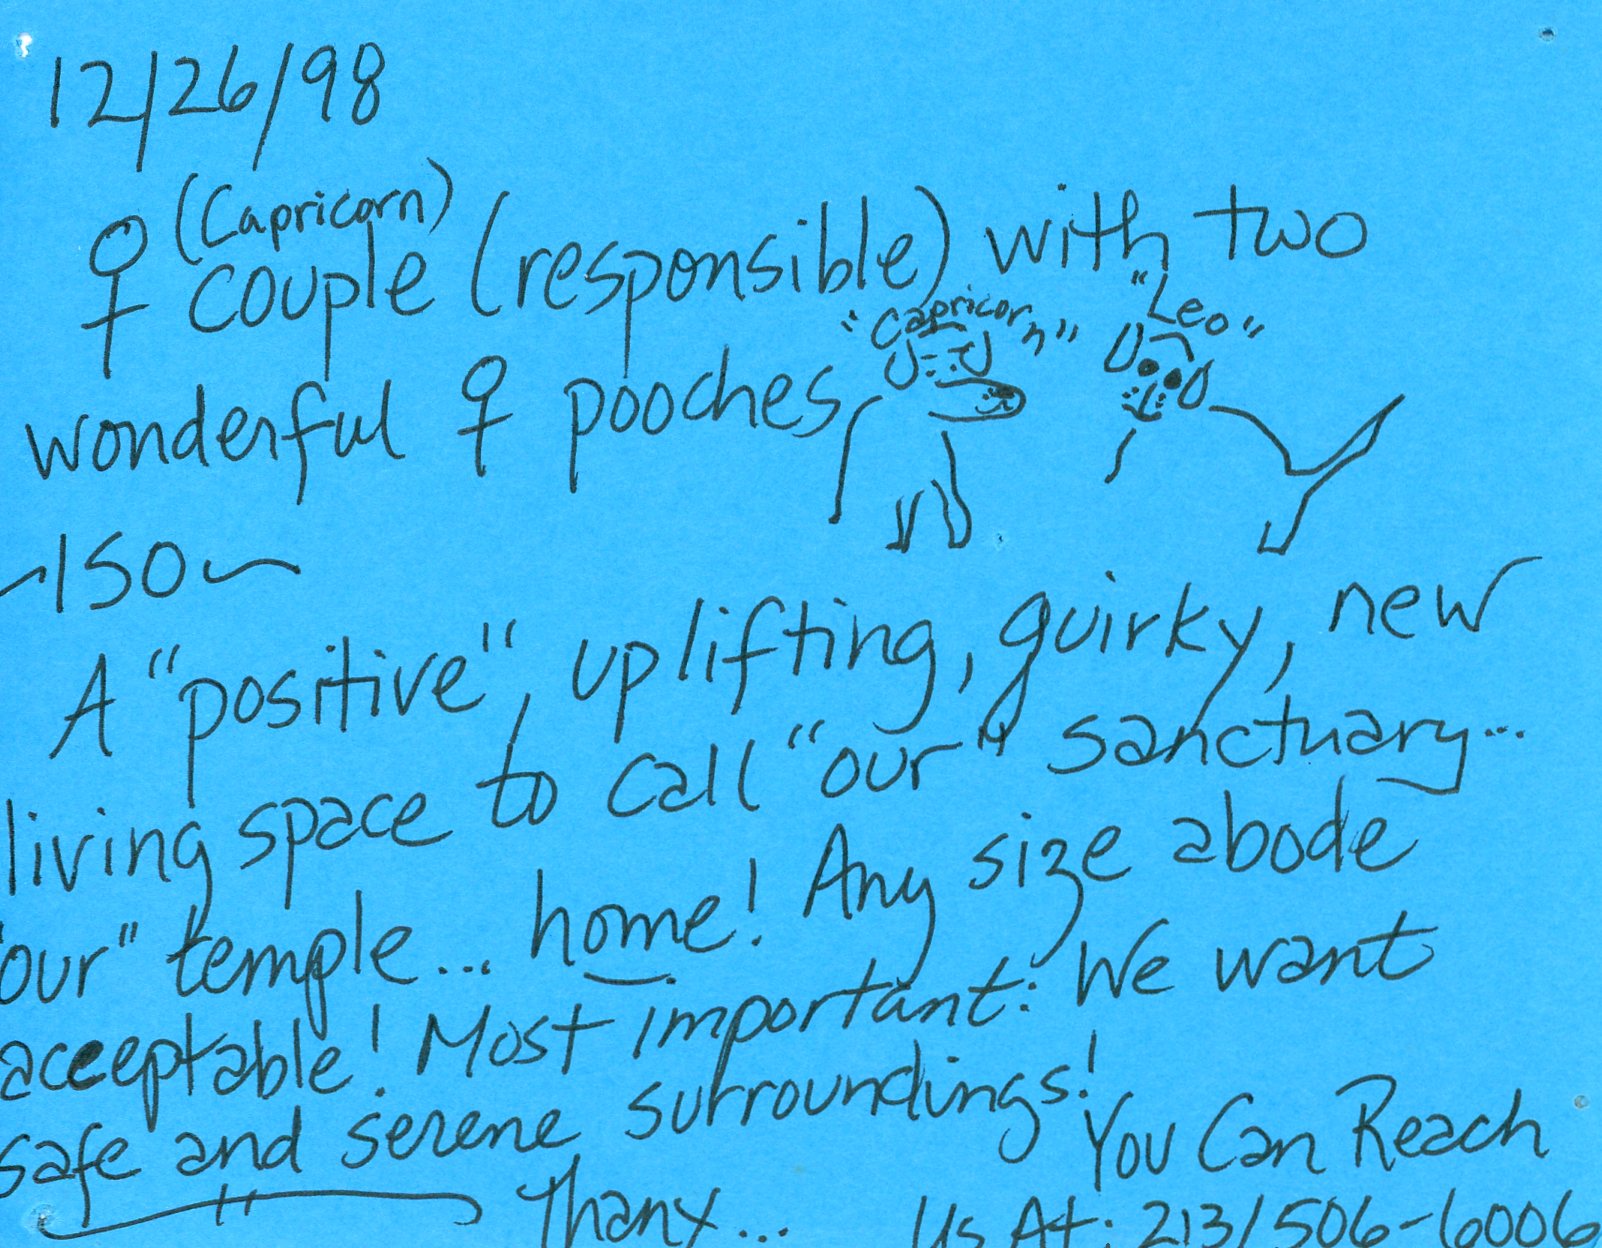 12/26/98
(Capricorn)
♀ couple (responsible) with two
"Capricorn" "Leo"
wonderful ♀ pooches
~ISO~
A "positive", uplifting, quirky, new
living space to call "our" sanctuary...
"our" temple... home! Any size abode
acceptable! Most important: We want
safe and serene surroundings!
You Can Reach
Thanx... Us At: 213/506-6006